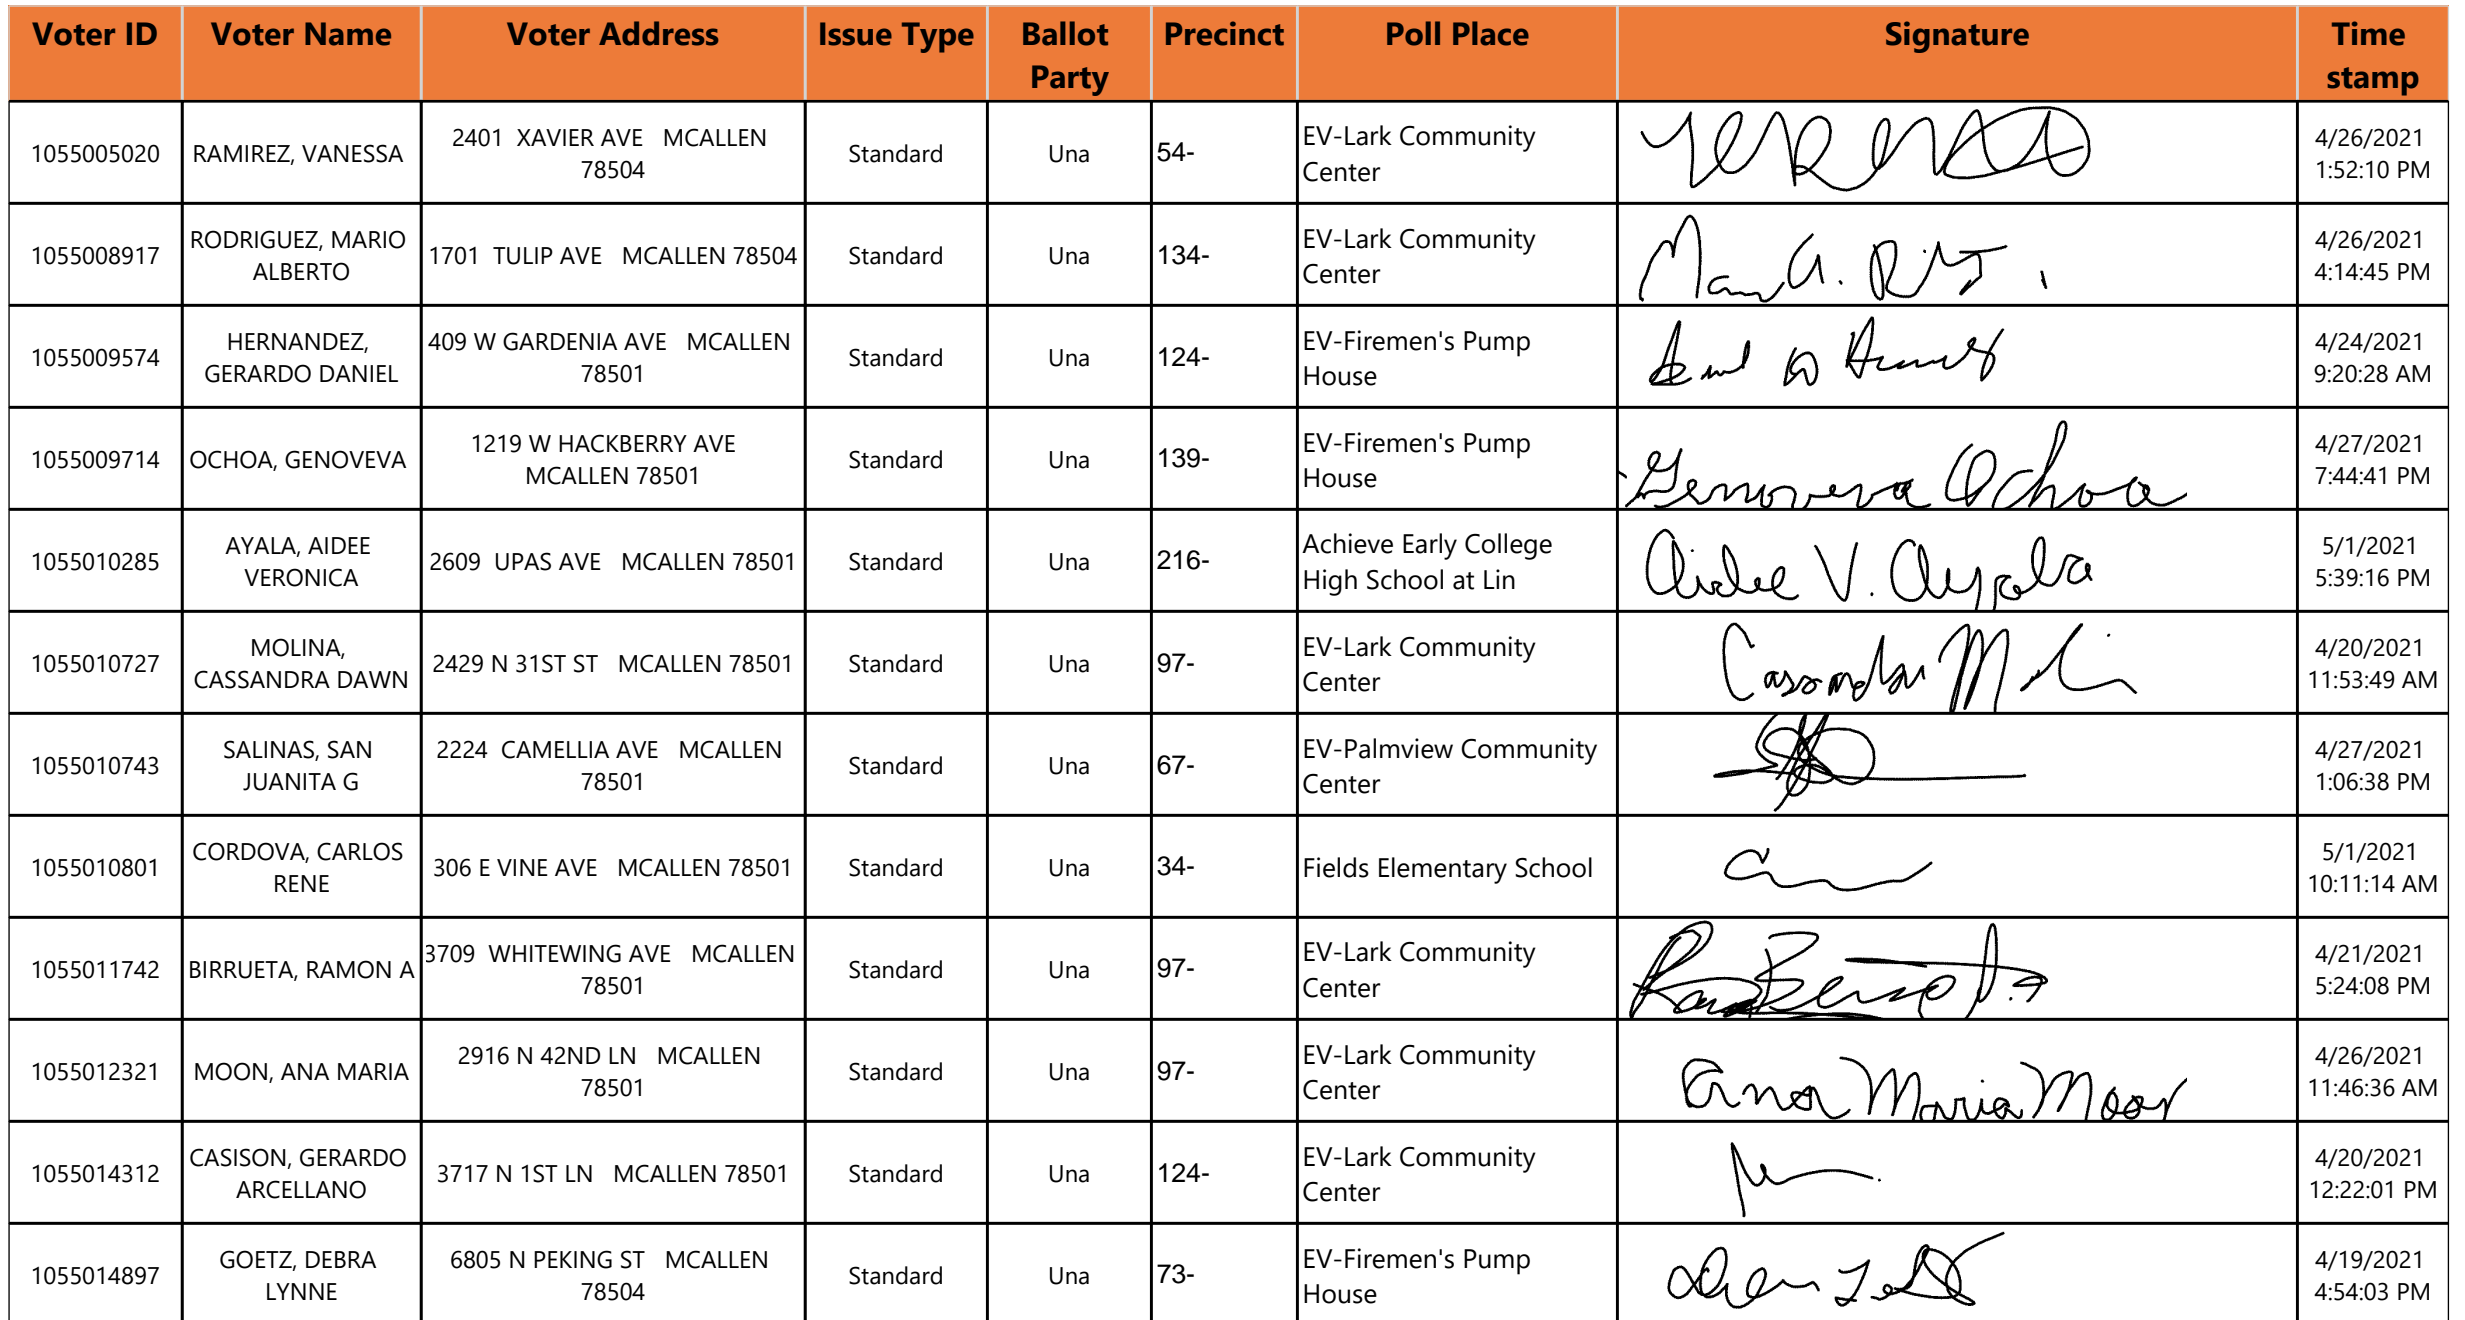 Voter ID Voter Name Voter Address Issue Type Ballot Party Precinct Poll Place Signature Time stamp
1055005020 RAMIREZ, VANESSA 2401 XAVIER AVE MCALLEN 78504 Standard Una 54- EV-Lark Community Center 4/26/2021 1:52:10 PM
1055008917 RODRIGUEZ, MARIO ALBERTO 1701 TULIP AVE MCALLEN 78504 Standard Una 134- EV-Lark Community Center 4/26/2021 4:14:45 PM
1055009574 HERNANDEZ, GERARDO DANIEL 409 W GARDENIA AVE MCALLEN 78501 Standard Una 124- EV-Firemen's Pump House 4/24/2021 9:20:28 AM
1055009714 OCHOA, GENOVEVA 1219 W HACKBERRY AVE MCALLEN 78501 Standard Una 139- EV-Firemen's Pump House Genoveva Ochoa 4/27/2021 7:44:41 PM
1055010285 AYALA, AIDEE VERONICA 2609 UPAS AVE MCALLEN 78501 Standard Una 216- Achieve Early College High School at Lin Aidee V. Ayala 5/1/2021 5:39:16 PM
1055010727 MOLINA, CASSANDRA DAWN 2429 N 31ST ST MCALLEN 78501 Standard Una 97- EV-Lark Community Center Cassandra 4/20/2021 11:53:49 AM
1055010743 SALINAS, SAN JUANITA G 2224 CAMELLIA AVE MCALLEN 78501 Standard Una 67- EV-Palmview Community Center 4/27/2021 1:06:38 PM
1055010801 CORDOVA, CARLOS RENE 306 E VINE AVE MCALLEN 78501 Standard Una 34- Fields Elementary School 5/1/2021 10:11:14 AM
1055011742 BIRRUETA, RAMON A 3709 WHITEWING AVE MCALLEN 78501 Standard Una 97- EV-Lark Community Center 4/21/2021 5:24:08 PM
1055012321 MOON, ANA MARIA 2916 N 42ND LN MCALLEN 78501 Standard Una 97- EV-Lark Community Center Ana Maria Moon 4/26/2021 11:46:36 AM
1055014312 CASISON, GERARDO ARCELLANO 3717 N 1ST LN MCALLEN 78501 Standard Una 124- EV-Lark Community Center 4/20/2021 12:22:01 PM
1055014897 GOETZ, DEBRA LYNNE 6805 N PEKING ST MCALLEN 78504 Standard Una 73- EV-Firemen's Pump House 4/19/2021 4:54:03 PM